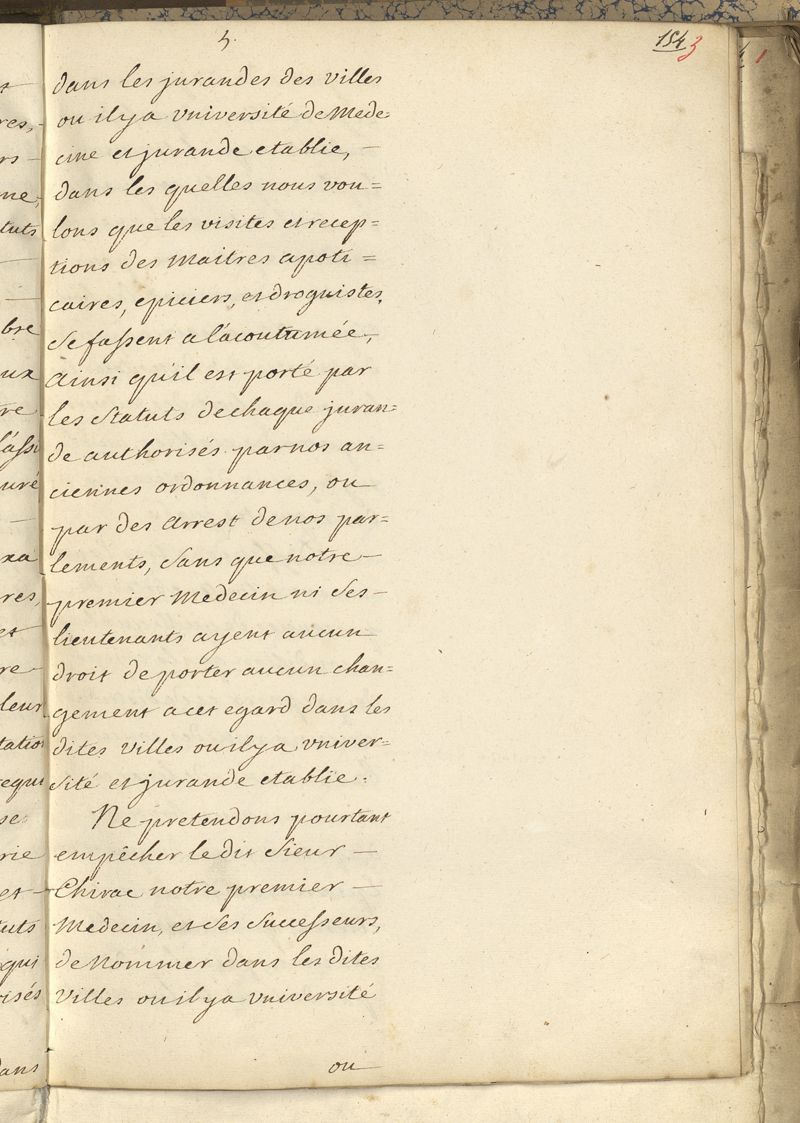 5.
154 3
dans les jurandes des villes
ou ilya vniversité de Mede=
cine et jurande etablie, —
dans les quelles nous vou=
lons que les visites et recep=
tions des Maitres apoti=
caires, epiciers, et droguistes,
se fassent a l'acoutumée,
ainsi qu'il est porté par
les Statuts de chaque juran=
de authorisés par nos an=
ciennes ordonnances, ou
par des Arrest de nos par=
lements, sans que notre —
premier Medecin ni ses —
lieutenants ayent aucun
droit de porter aucun chan=
gement a cet egard dans les
dites villes ou ilya vniver=
sité et jurande etablie.
Ne pretendons pourtant
empêcher le dit Sieur —
Chirac notre premier —
Medecin, et ses Successeurs,
de Nommer dans les dites
Villes ou ilya vniversité
ou